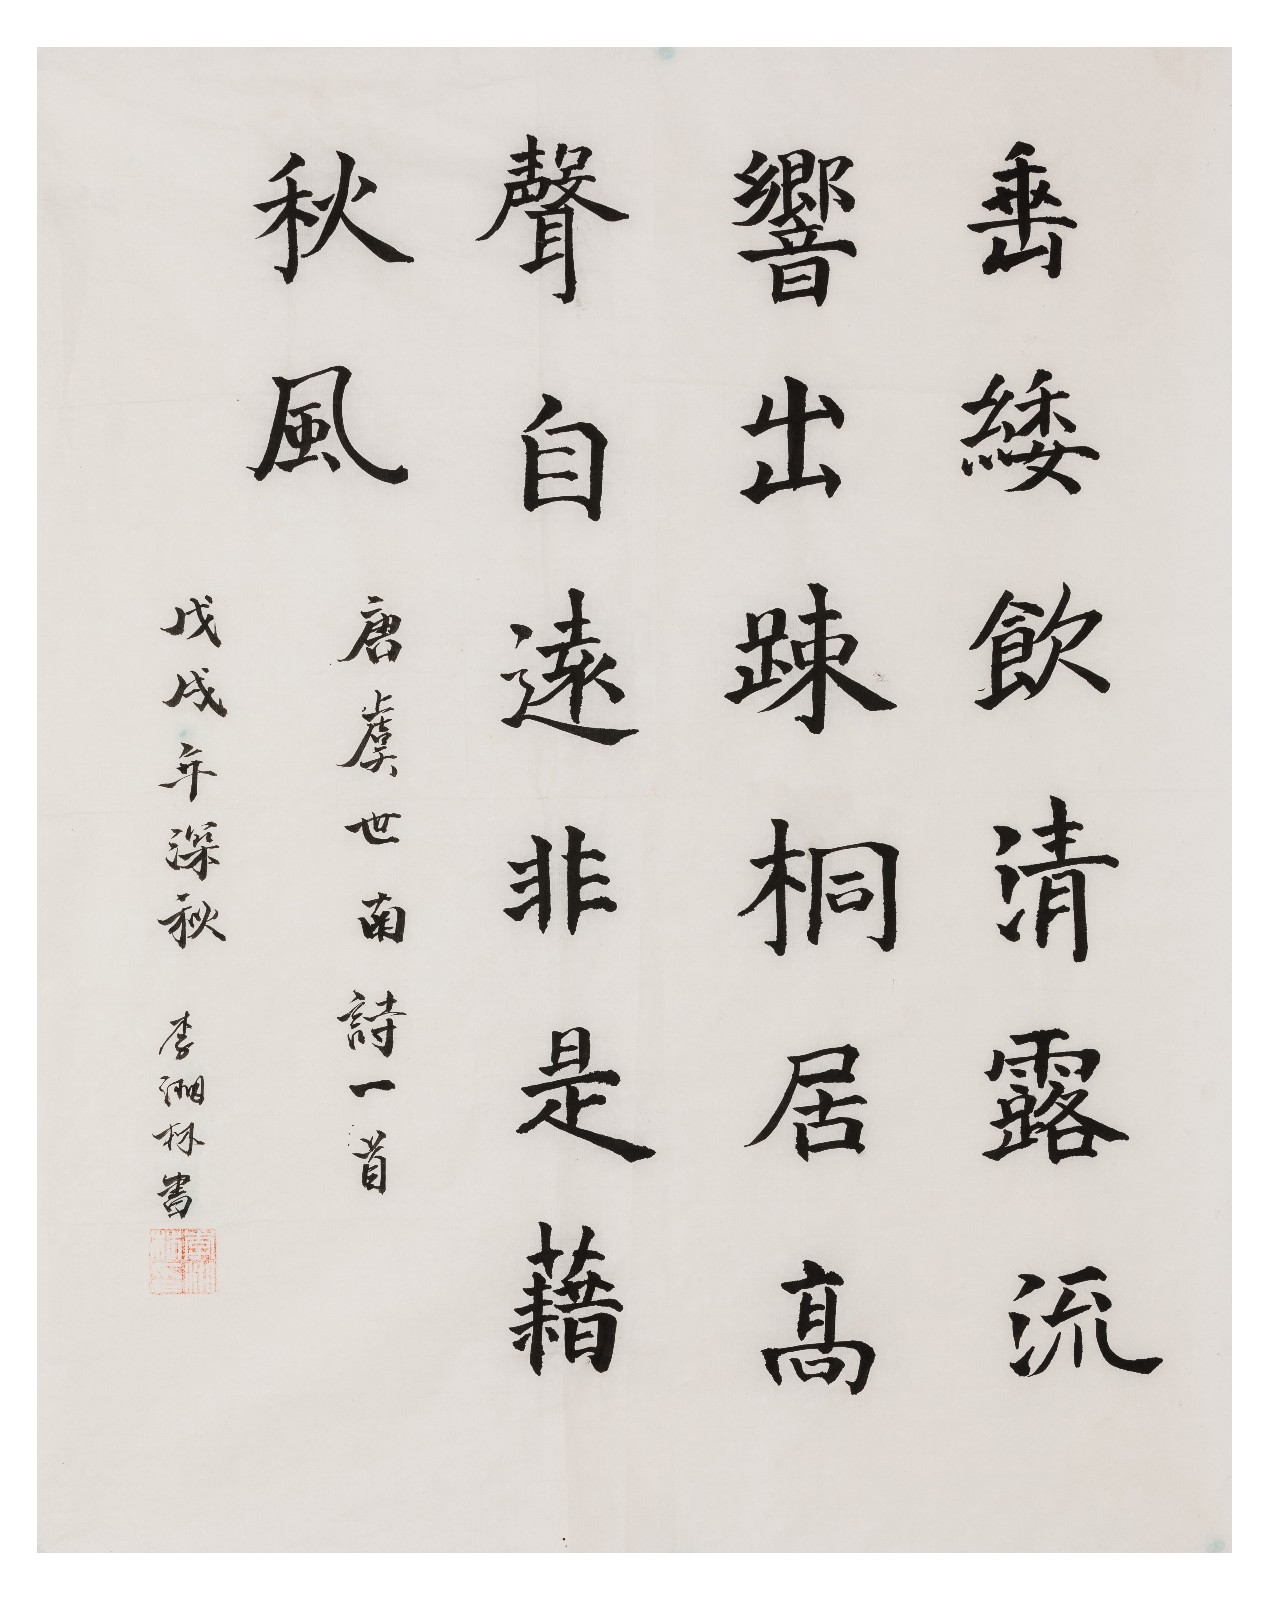 垂緌飲清露流
響出踈桐居高
聲自遠非是藉
秋風
唐虞世南詩一首
戊戌年深秋 李湘林書